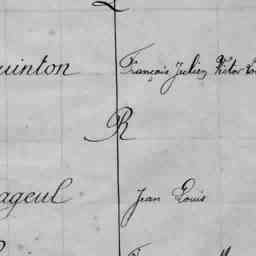 uinton François Julien Victor
R
ageul Jean Louis